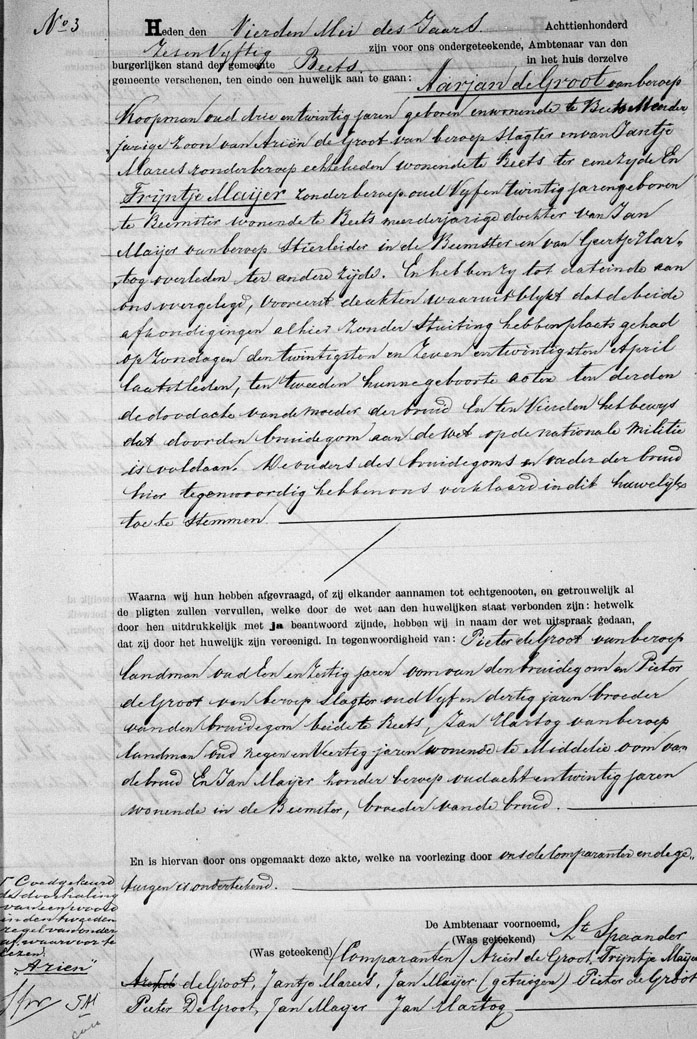 No 3
Heden den Vierden Mei des Jaars Achttienhonderd
Zeven Vyftig zijn voor ons ondergeteekende, Ambtenaar van den
burgerlijken stand der gemeente Beets in het huis derzelve
gemeente verschenen, ten einde een huwelijk aan te gaan: Aarjan de Groot van beroep
Koopman oud drie en twintig jaren geboren en wonende te Beets Meerder
jarige zoon van Ariën de Groot van beroep Slagter en van Jantje
Marees zonder beroep echtelieden wonende te Beets ter eene zyde En
Trijntje Maijer zonder beroep oud Vyf en twintig jaren geboren
te Beemster wonende te Beets meerderjarige dochter van Jan
Maijer van beroep Stierleider in de Beemster en van Geertje Har-
tog overleden ter andere zyde. En hebben zy tot dateinde aan
ons overgelegd, vooreerst de akten waaruit blykt dat de beide
afkondigingen alhier zonder stuiting hebben plaats gehad
op Zondagen den twintigsten en Zeven en twintigsten April
laatstleden, ten tweeden hunne geboorte acten ten derden
de doodacte van de moeder der bruid En ten Vierden het bewys
dat door den bruidegom aan de wet op de nationale Militie
is voldaan. De ouders des bruidegoms en vader der bruid
hier tegenwoordig hebben ons verklaard in dit huwelijk
toe te stemmen
Waarna wij hun hebben afgevraagd, of zij elkander aannamen tot echtgenooten, en getrouwelijk al
de pligten zullen vervullen, welke door de wet aan den huwelijken staat verbonden zijn: hetwelk
door hen uitdrukkelijk met ja beantwoord zijnde, hebben wij in naam der wet uitspraak gedaan,
dat zij door het huwelijk zijn vereenigd. In tegenwoordigheid van: Pieter de Groot van beroep
landman oud Een en Zestig jaren oom van den bruidegom en Pieter
de Groot van beroep Slagter oud Vyf en dertig jaren broeder
van den bruidegom beide te Beets, Jan Hartog van beroep
landman oud negen en Veertig jaren wonende te Middelie oom van
de bruid En Jan Maijer zonder beroep oud acht en twintig jaren
wonende in de Beemster, broeder van de bruid.
En is hiervan door ons opgemaakt deze akte, welke na voorlezing door ons de Comparanten en de ge-
tuigen is onderteekend.
De Ambtenaar voornoemd,
(Was geteekend) Spaander
(Was geteekend) (Comparanten) Ariën de Groot, Trijntje Maijer
de Groot, Jantje Marees, Jan Maijer (getuigen) Pieter de Groot
Pieter De Groot, Jan Mayer Jan Hartog
Goedgekeurd
de doorhaling
van een woord
in den tweeden
regel van onder
af, waarvoor te
lezen
"Arien"